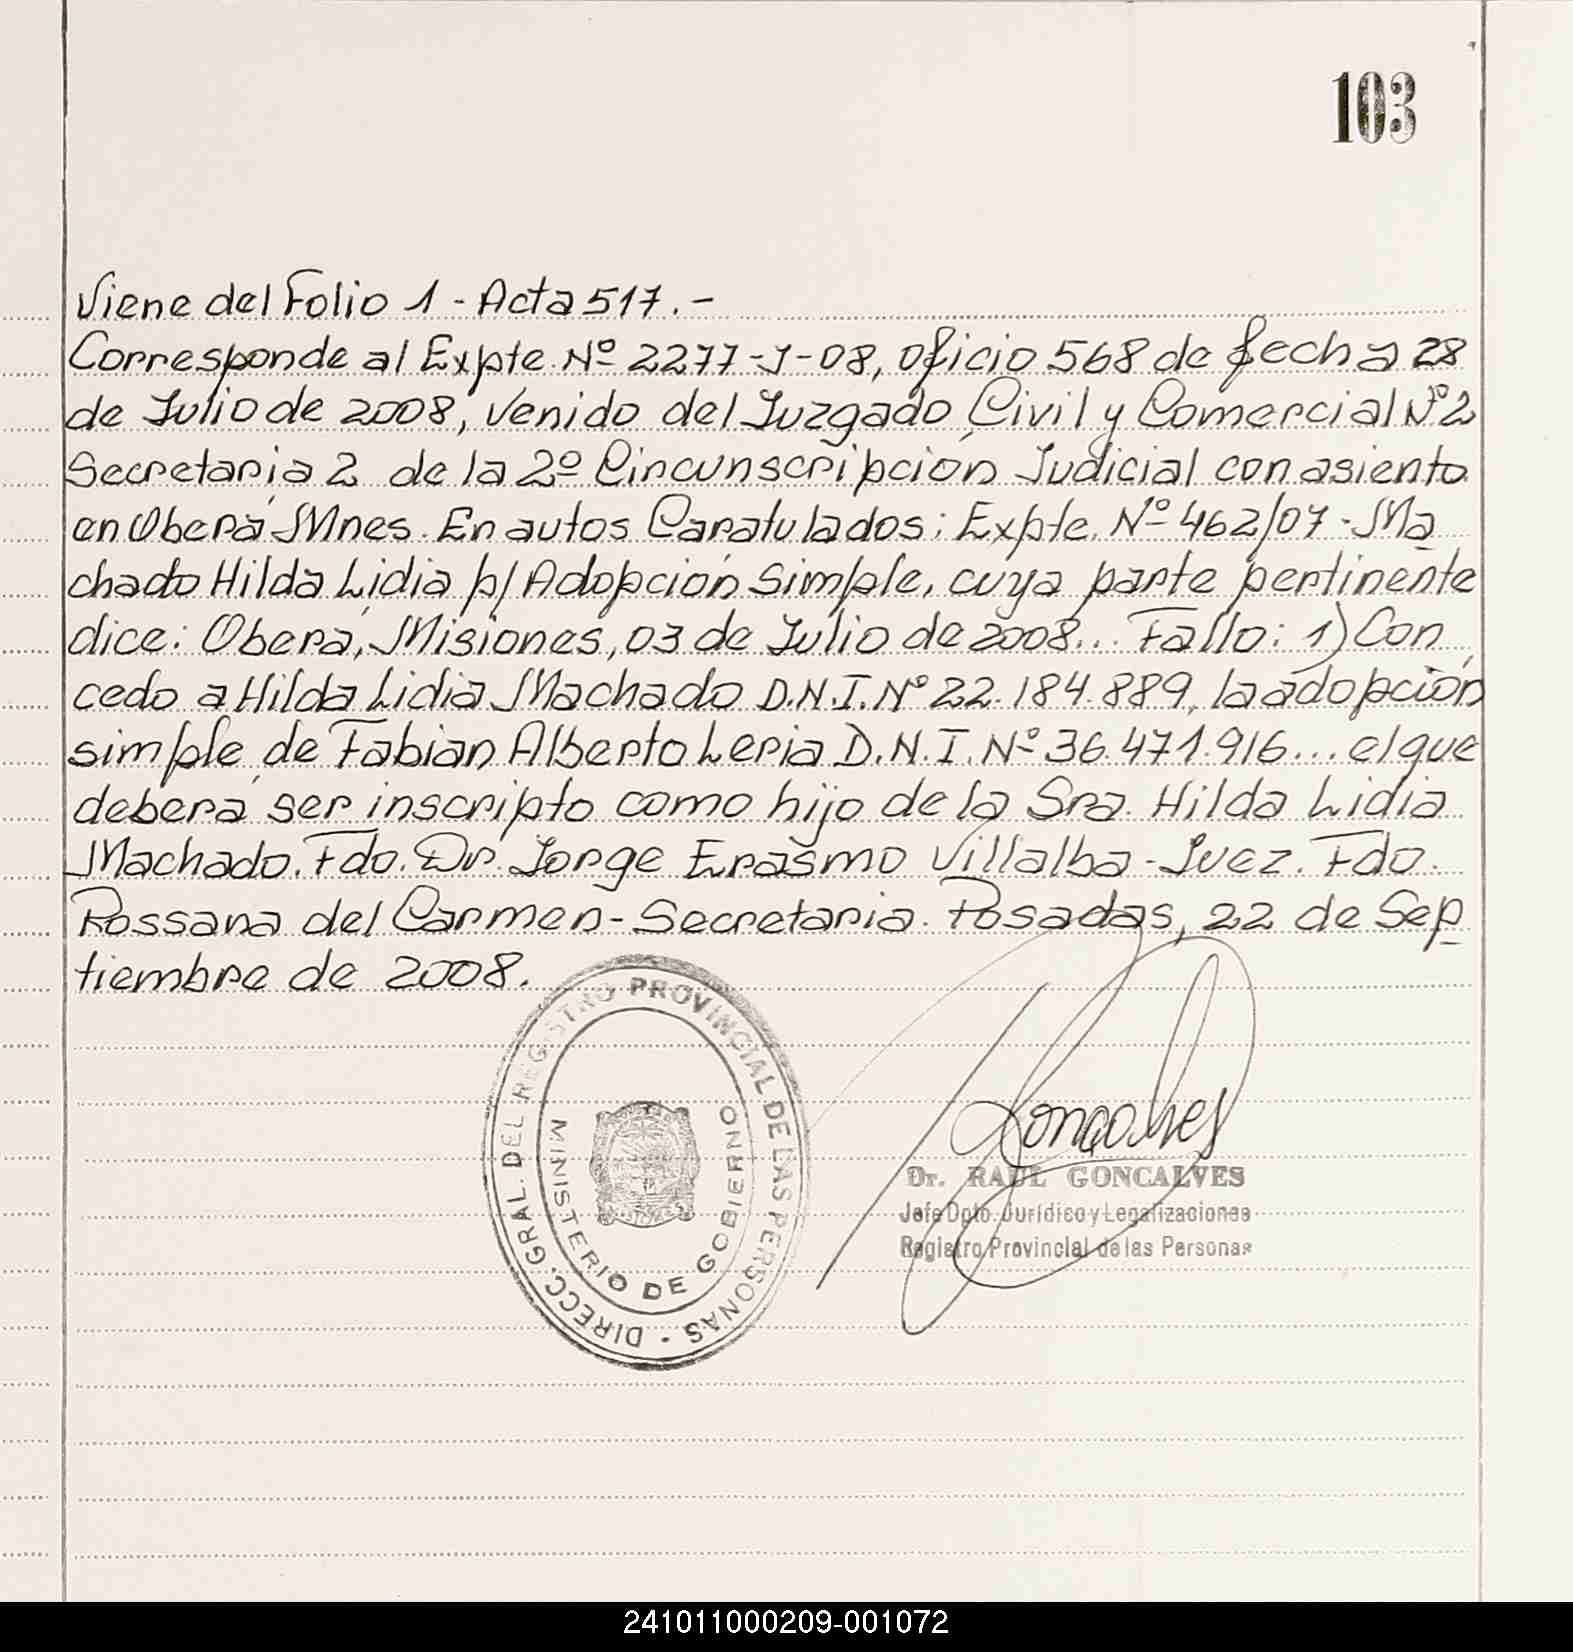 103
Viene del Folio 1 - Acta 517.-
Corresponde al Expte. Nº 2277-J-08, oficio 568 de fecha 28
de Julio de 2008, venido del Juzgado Civil y Comercial Nº 2
Secretaría 2 de la 2º Circunscripción Judicial con asiento
en Oberá Mnes. En autos Caratulados: Expte. Nº 462/07 - Ma
chado Hilda Lidia p/ Adopción Simple, cuya parte pertinente
dice: Oberá, Misiones, 03 de Julio de 2008... Fallo: 1) Con
cedo a Hilda Lidia Machado D.N.I. Nº 22.184.889, la adopción
simple de Fabian Alberto Leria D.N.I. Nº 36.471.916... el que
deberá ser inscripto como hijo de la Sra. Hilda Lidia
Machado. Fdo. Dr. Jorge Erasmo Villalba - Juez. Fdo.
Rossana del Carmen - Secretaria. Posadas, 22 de Sep
tiembre de 2008.
DIRECC. GRAL. DEL REGISTRO PROVINCIAL DE LAS PERSONAS
MINISTERIO DE GOBIERNO
Goncalves
Dr. RAUL GONCALVES
Jefe Dpto. Jurídico y Legalizaciones
Registro Provincial de las Personas
241011000209-001072